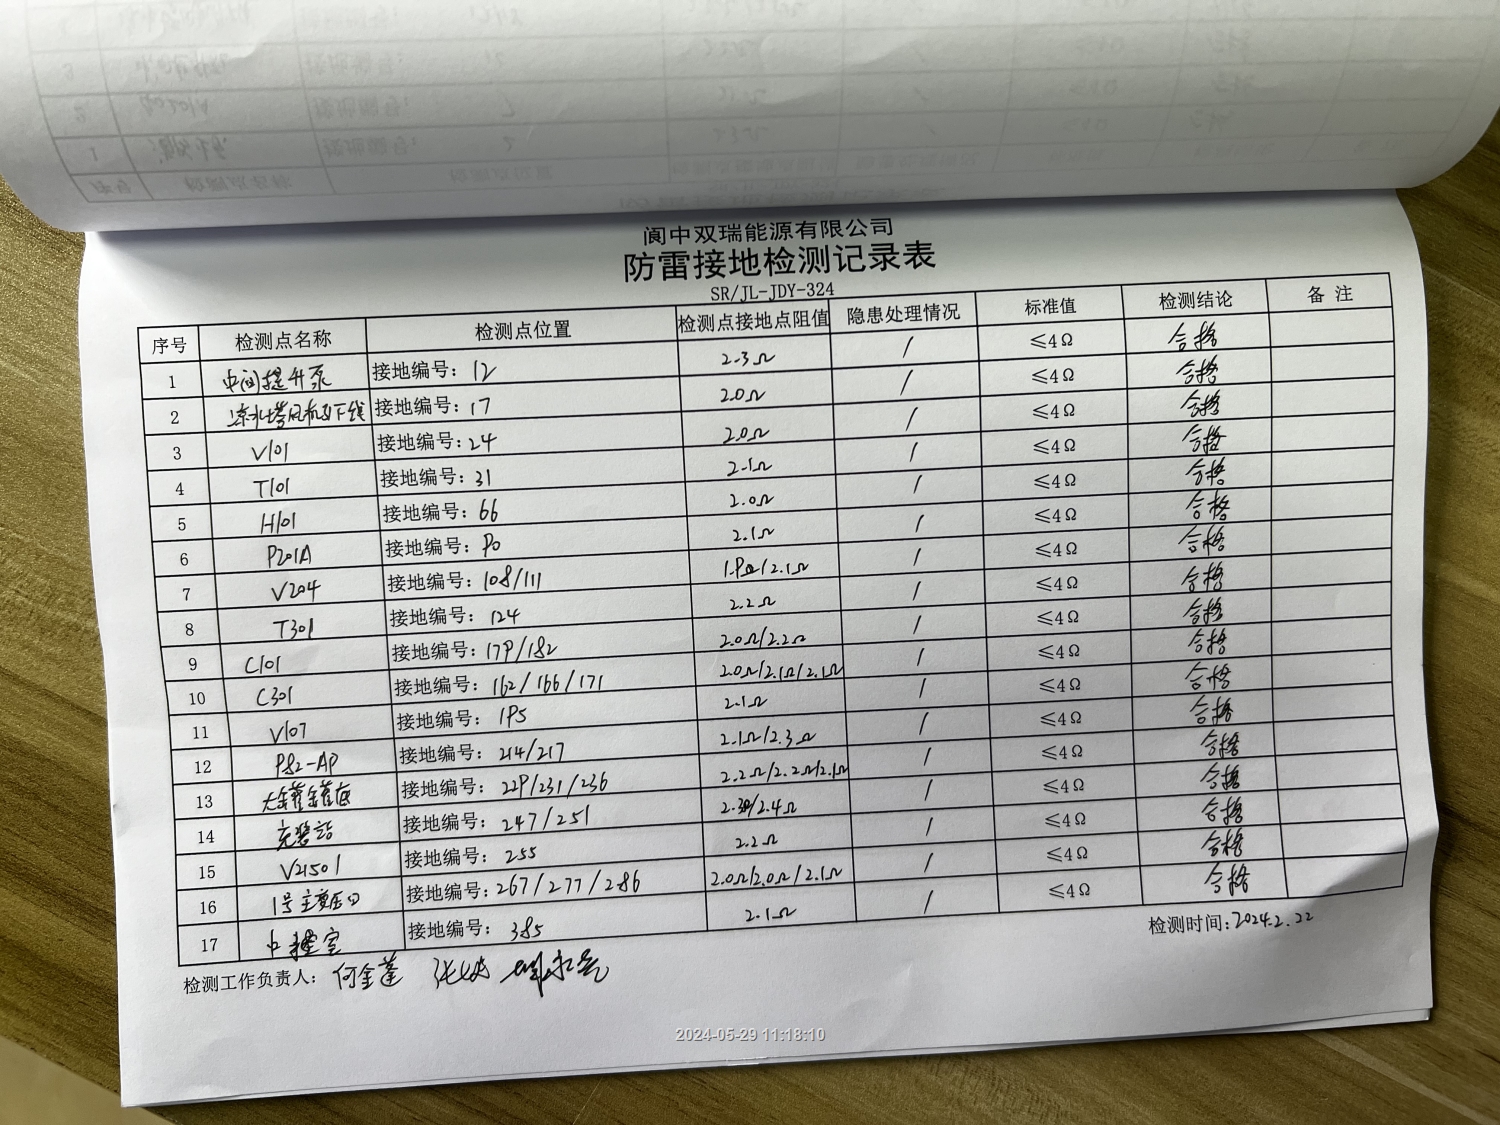 阆中双瑞能源有限公司
防雷接地检测记录表
SR/JL-JDY-324
序号 检测点名称 检测点位置 检测点接地点阻值 隐患处理情况 标准值 检测结论 备 注
1 中间提升泵 接地编号: 12 2.3Ω / ≤4Ω 合格
2 凉水塔风机引下线 接地编号: 17 2.0Ω / ≤4Ω 合格
3 V101 接地编号: 24 2.0Ω / ≤4Ω 合格
4 T101 接地编号: 31 2.1Ω / ≤4Ω 合格
5 H101 接地编号: 66 2.0Ω / ≤4Ω 合格
6 P201A 接地编号: 90 2.1Ω / ≤4Ω 合格
7 V204 接地编号: 108/111 1.9Ω/2.1Ω / ≤4Ω 合格
8 T301 接地编号: 124 2.2Ω / ≤4Ω 合格
9 C101 接地编号: 179/182 2.0Ω/2.2Ω / ≤4Ω 合格
10 C301 接地编号: 162/166/171 2.0Ω/2.1Ω/2.1Ω / ≤4Ω 合格
11 V107 接地编号: 195 2.1Ω / ≤4Ω 合格
12 接地编号: 214/217 2.1Ω/2.3Ω / ≤4Ω 合格
13 大储罐罐底 接地编号: 229/231/236 2.2Ω/2.2Ω/2.1Ω / ≤4Ω 合格
14 充装站 接地编号: 247/251 2.3Ω/2.4Ω / ≤4Ω 合格
15 V21501 接地编号: 255 2.2Ω / ≤4Ω 合格
16 1号主变压口 接地编号: 267/277/286 2.0Ω/2.0Ω/2.1Ω / ≤4Ω 合格
17 中控室 接地编号: 385 2.1Ω / ≤4Ω 合格
检测工作负责人: 何金蓬
检测时间: 2024.2.22
2024-05-29 11:18:10